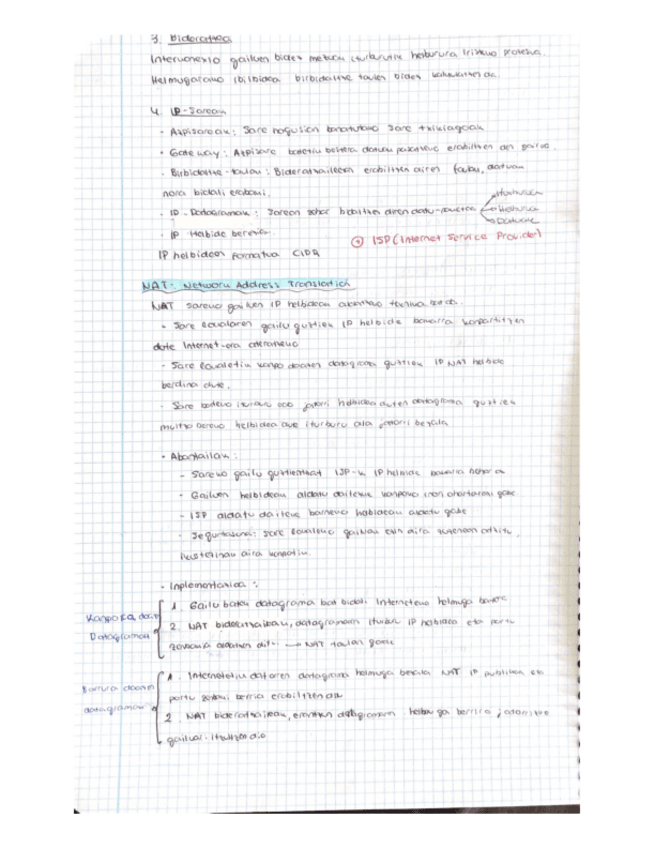 3. Bideratzea
Interkonexio gailuen bidez metatu iturburutik helburura iristeko prozesua.
Helmugarako ibilbidea birbidaltze taulen bidez kalkulatzen da.
4. IP-Sarean
· Azpisareak: Sare nagusian banatutako sare txikiagoak
· Gateway: Azpisare batetik bestera datuak pasatzeko erabiltzen den
· Birbidaltze-taulak: Bideratzaileek erabiltzen diren taulak, datuak
nora bidali erabaki.
· IP-Datagramak: Sarean zehar bidaltzen diren datu-paketeak
Iturburua
Helburua
Datuak
· IP Helbide bereziak
+ ISP (Internet Service Provider)
IP helbideen formatua CIDR
NAT: Network Address Translation
NAT sareko gailuen IP helbideak aldatzeko teknika bat da.
· Sare lokalaren gailu guztiek IP helbide bakarra konpartitzen
dute Internet-era ateratzeko
· Sare lokaletik kanpo doazen datagrama guztiek IP NAT helbide
berdina dute.
· Sare bateko iturburu edo jatorri helbidea duten datagrama guztiek
multzo bereko helbidea dute iturburu ala jatorri bezala
· Abantailak:
- Sareko gailu guztientzat ISP-k IP helbide bakarra behar da
- Gailuen helbideak aldatu daitezke kanpokoa inori ohartarazi gabe
- ISP aldatu daiteke barneko helbideak aldatu gabe
- Segurtasuna: sare lokaleko gailuak ezin dira zuzenean atzitu,
ikustezinak dira kanpotik.
- Inplementazioa:
Kanpora doazen
Datagramak
1. Gailu batek datagrama bat bidali Interneteko helmuga batera
2. NAT bideratzaileak, datagramaren iturburu IP helbidea eta portu
zenbakia aldatzen ditu → NAT taulan gorde
Barrura doazen
datagramak
1. Internetetik datorren datagrama helmuga bezala NAT IP publikoa eta
portu zenbaki berria erabiltzen du
2. NAT bideratzaileak, erantzun datagramaren helmuga berrira jatorrizko
gailuari itzultzen dio